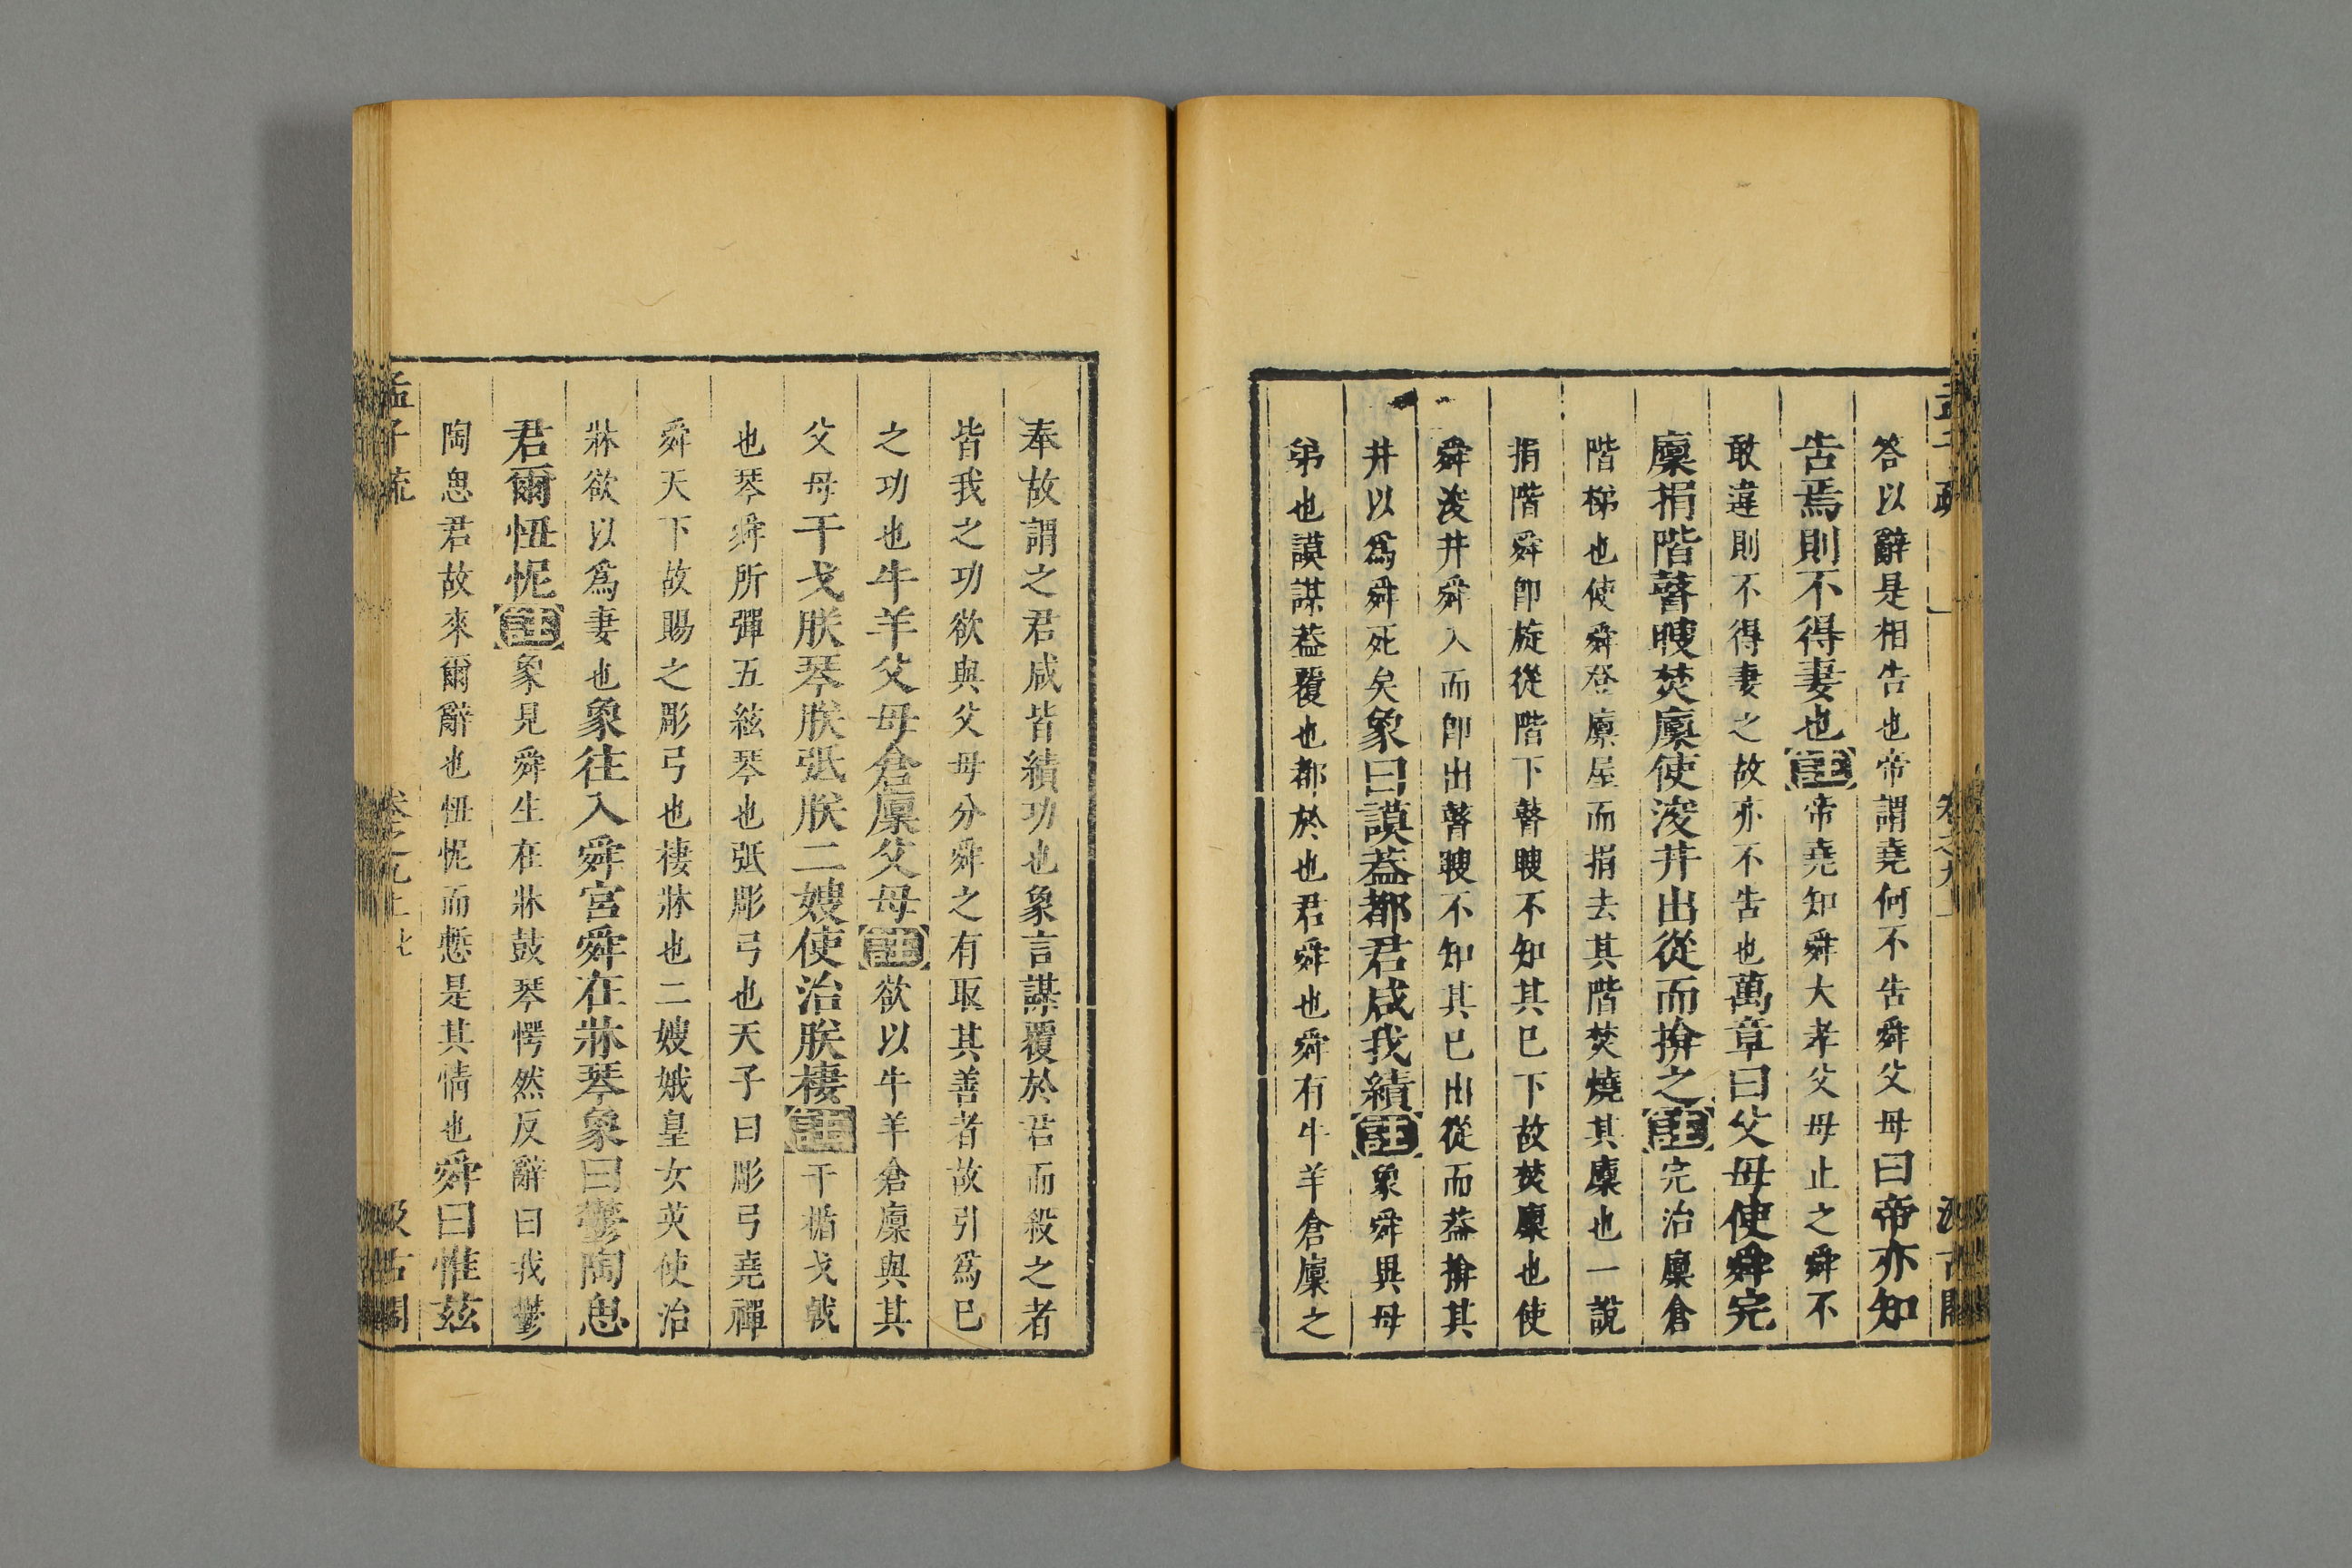 答以辭是相告也帝謂堯何不告舜父母曰帝亦知
告焉則不得妻也註帝堯知舜大孝父母止之舜不
敢違則不得妻之故亦不告也萬章曰父母使舜完
廩捐階瞽瞍焚廩使浚井出從而揜之註完治廩倉
階梯也使舜登廩屋而捐去其階焚燒其廩也一說
捐階舜即旋從階下瞽瞍不知其已下故焚廩也使
舜浚井舜入而即出瞽瞍不知其已出從而蓋揜其
井以爲舜死矣象曰謨蓋都君咸我績註象舜異母
弟也謨謀蓋覆也都於也君舜也舜有牛羊倉廩之
奉故謂之君咸皆績功也象言謀覆於君而殺之者
皆我之功欲與父母分舜之有取其善者故引爲已
之功也牛羊父母倉廩父母註欲以牛羊倉廩與其
父母干戈朕琴朕弤朕二嫂使治朕棲註干楯戈戟
也琴舜所彈五絃琴也弤彫弓也天子曰彫弓堯禪
舜天下故賜之彫弓也棲牀也二嫂娥皇女英使治
牀欲以爲妻也象往入舜宮舜在牀琴象曰鬱陶思
君爾忸怩註象見舜生在牀鼓琴愕然反辭曰我鬱
陶思君故來爾辭也忸怩而慙是其情也舜曰惟茲
孟子疏
卷之九上
汲古閣